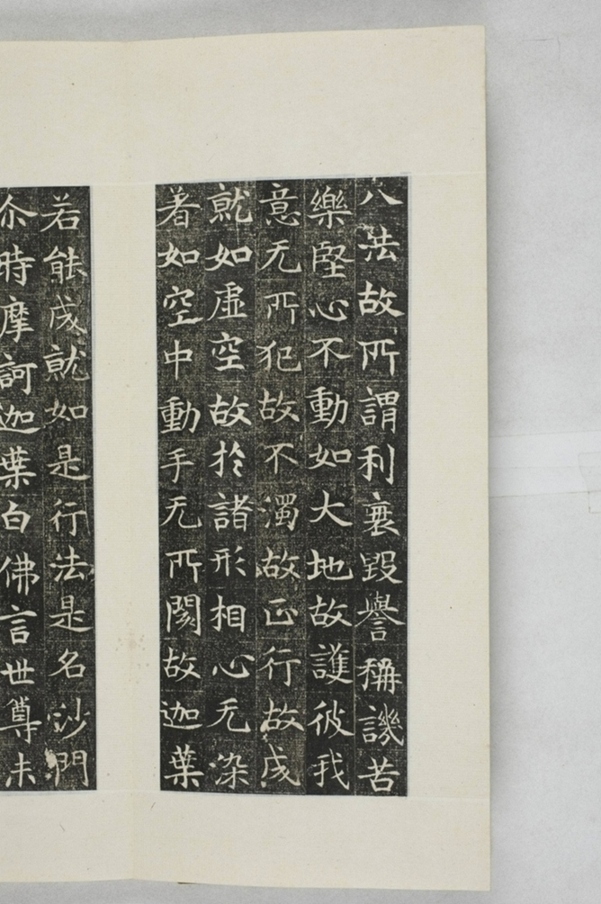 八法故所謂利衰毀譽稱譏苦
樂堅心不動如大地故護彼我
意无所犯故不濁故正行故成
就如虛空故於諸形相心无染
著如空中動手无所閡故迦葉
若能成就如是行法是名沙門
尒時摩訶迦葉白佛言世尊未